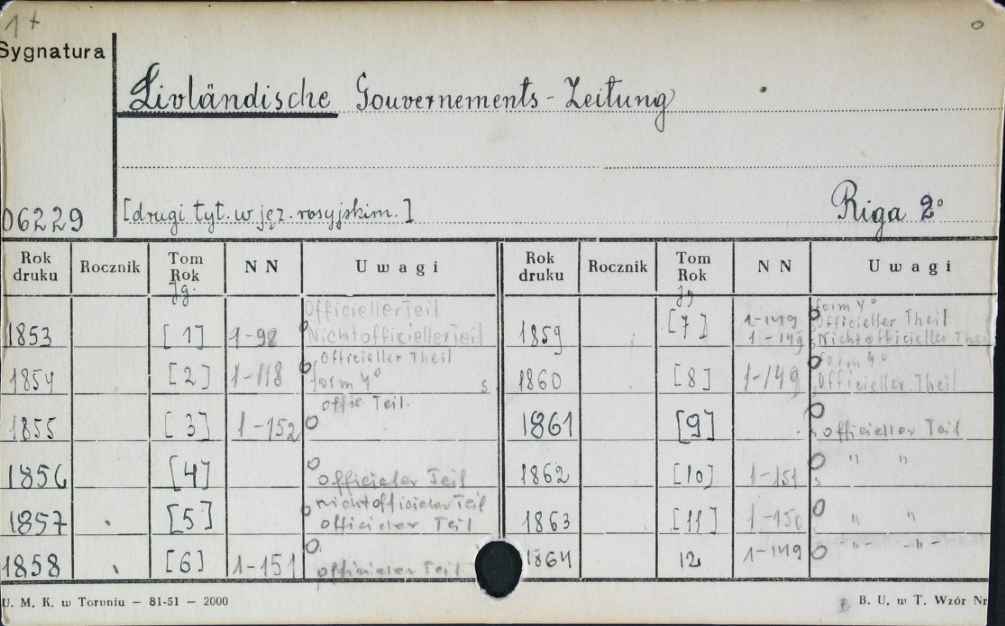 1 +
Sygnatura
Livländische Gouvernements-Zeitung
06229
[drugi tyt. w jęz. rosyjskim.]
Riga 2°
Rok druku Rocznik Tom Rok N N Uwagi Rok druku Rocznik Tom Rok N N Uwagi
Jg. Jg
1853 [1] 1-92 Officieller Teil
Nichtofficieller Teil
1854 [2] 1-118 Officieller Theil
form 4° s
1855 [3] 1-152 offic Teil.
1856 [4] officieler Teil
1857 [5] nichtofficieler Teil
officieler Teil
1858 [6] 1-151 officieler Teil
1859 [7] 1-149 form 4°
Officieller Theil
1-149 Nichtofficieller Theil
1860 [8] 1-149 form 4°
Officieller Theil
1861 [9] officieller Teil
1862 [10] 1-151 " "
1863 [11] 1-150 " "
1864 12 1-149 - " - - " -
U. M. K. w Toruniu – 81-51 – 2000
B. U. w T. Wzór Nr